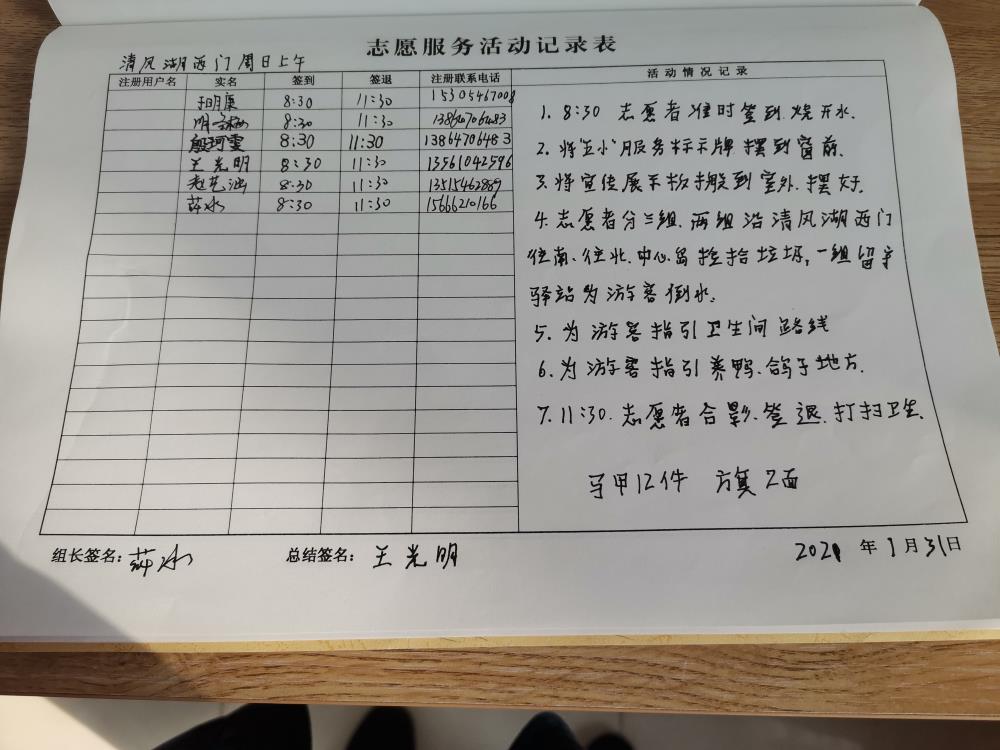 志愿服务活动记录表
清风湖西门周日上午
注册用户名 实名 签到 签退 注册联系电话 活动情况记录
8:30 11:30 15305467008
8:30 11:30
殷珂雯 8:30 11:30 13864706483
王光明 8:30 11:30 13561042596
8:30 11:30 13515462889
薛冰 8:30 11:30 15666210166
1. 8:30 志愿者准时签到.烧开水.
2. 将"五小"服务标示牌摆到窗前.
3. 将宣传展示板搬到室外.摆好.
4. 志愿者分三组.两组沿清风湖西门
往南、往北.中心岛捡拾垃圾,一组留守
驿站为游客倒水.
5. 为游客指引卫生间路线
6. 为游客指引养鸭、鸽子地方.
7. 11:30. 志愿者合影.签退.打扫卫生.
马甲12件 方旗2面
组长签名: 薛冰 总结签名: 王光明 2021年1月31日